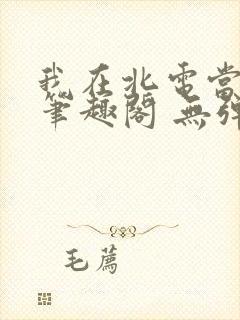 我在北電當
筆趣閣 無彈
毛薦